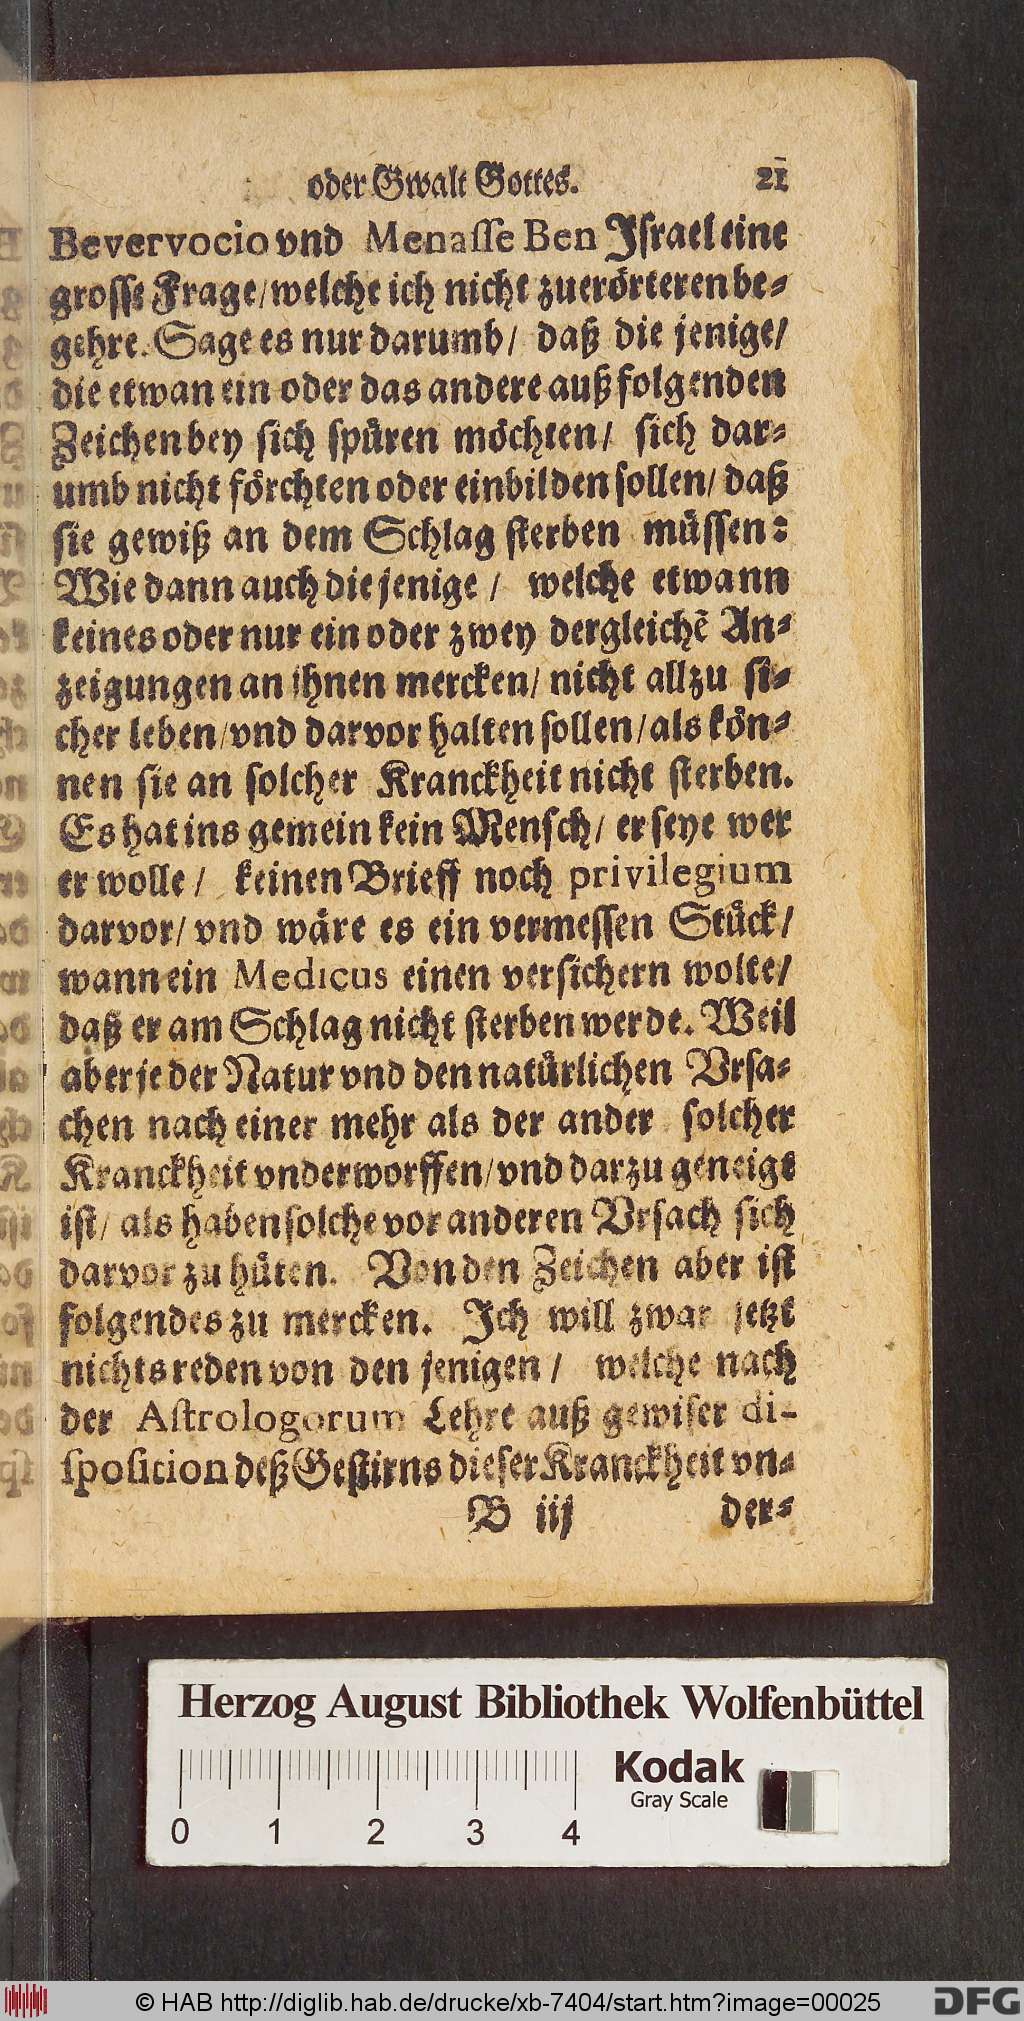 oder Gwalt Gottes. 21
Bevervocio vnd Menasse Ben Israel eine
grosse Frage/ welche ich nicht zuerörteren be-
gehre. Sage es nur darumb/ daß die jenige/
die etwan ein oder das andere auß folgenden
Zeichen bey sich spüren möchten/ sich dar-
umb nicht förchten oder einbilden sollen/ daß
sie gewiß an dem Schlag sterben müssen:
Wie dann auch die jenige / welche etwann
keines oder nur ein oder zwey dergleichẽ An-
zeigungen an ihnen mercken/ nicht allzu si-
cher leben/ vnd darvor halten sollen/ als kön-
nen sie an solcher Kranckheit nicht sterben.
Es hat ins gemein kein Mensch/ er seye wer
er wolle / keinen Brieff noch privilegium
darvor/ vnd wäre es ein vermessen Stück/
wann ein Medicus einen versichern wolte/
daß er am Schlag nicht sterben werde. Weil
aber je der Natur vnd den natürlichen Vrsa-
chen nach einer mehr als der ander solcher
Kranckheit vnderworffen/ vnd darzu geneigt
ist/ als haben solche vor anderen Vrsach sich
darvor zu hüten. Von den Zeichen aber ist
folgendes zu mercken. Ich will zwar jetzt
nichts reden von den jenigen / welche nach
der Astrologorum Lehre auß gewiser di-
sposition deß Gestirns dieser Kranckheit vn-
B iij der-
Herzog August Bibliothek Wolfenbüttel
Kodak
Gray Scale
0 1 2 3 4
© HAB http://diglib.hab.de/drucke/xb-7404/start.htm?image=00025
DFG